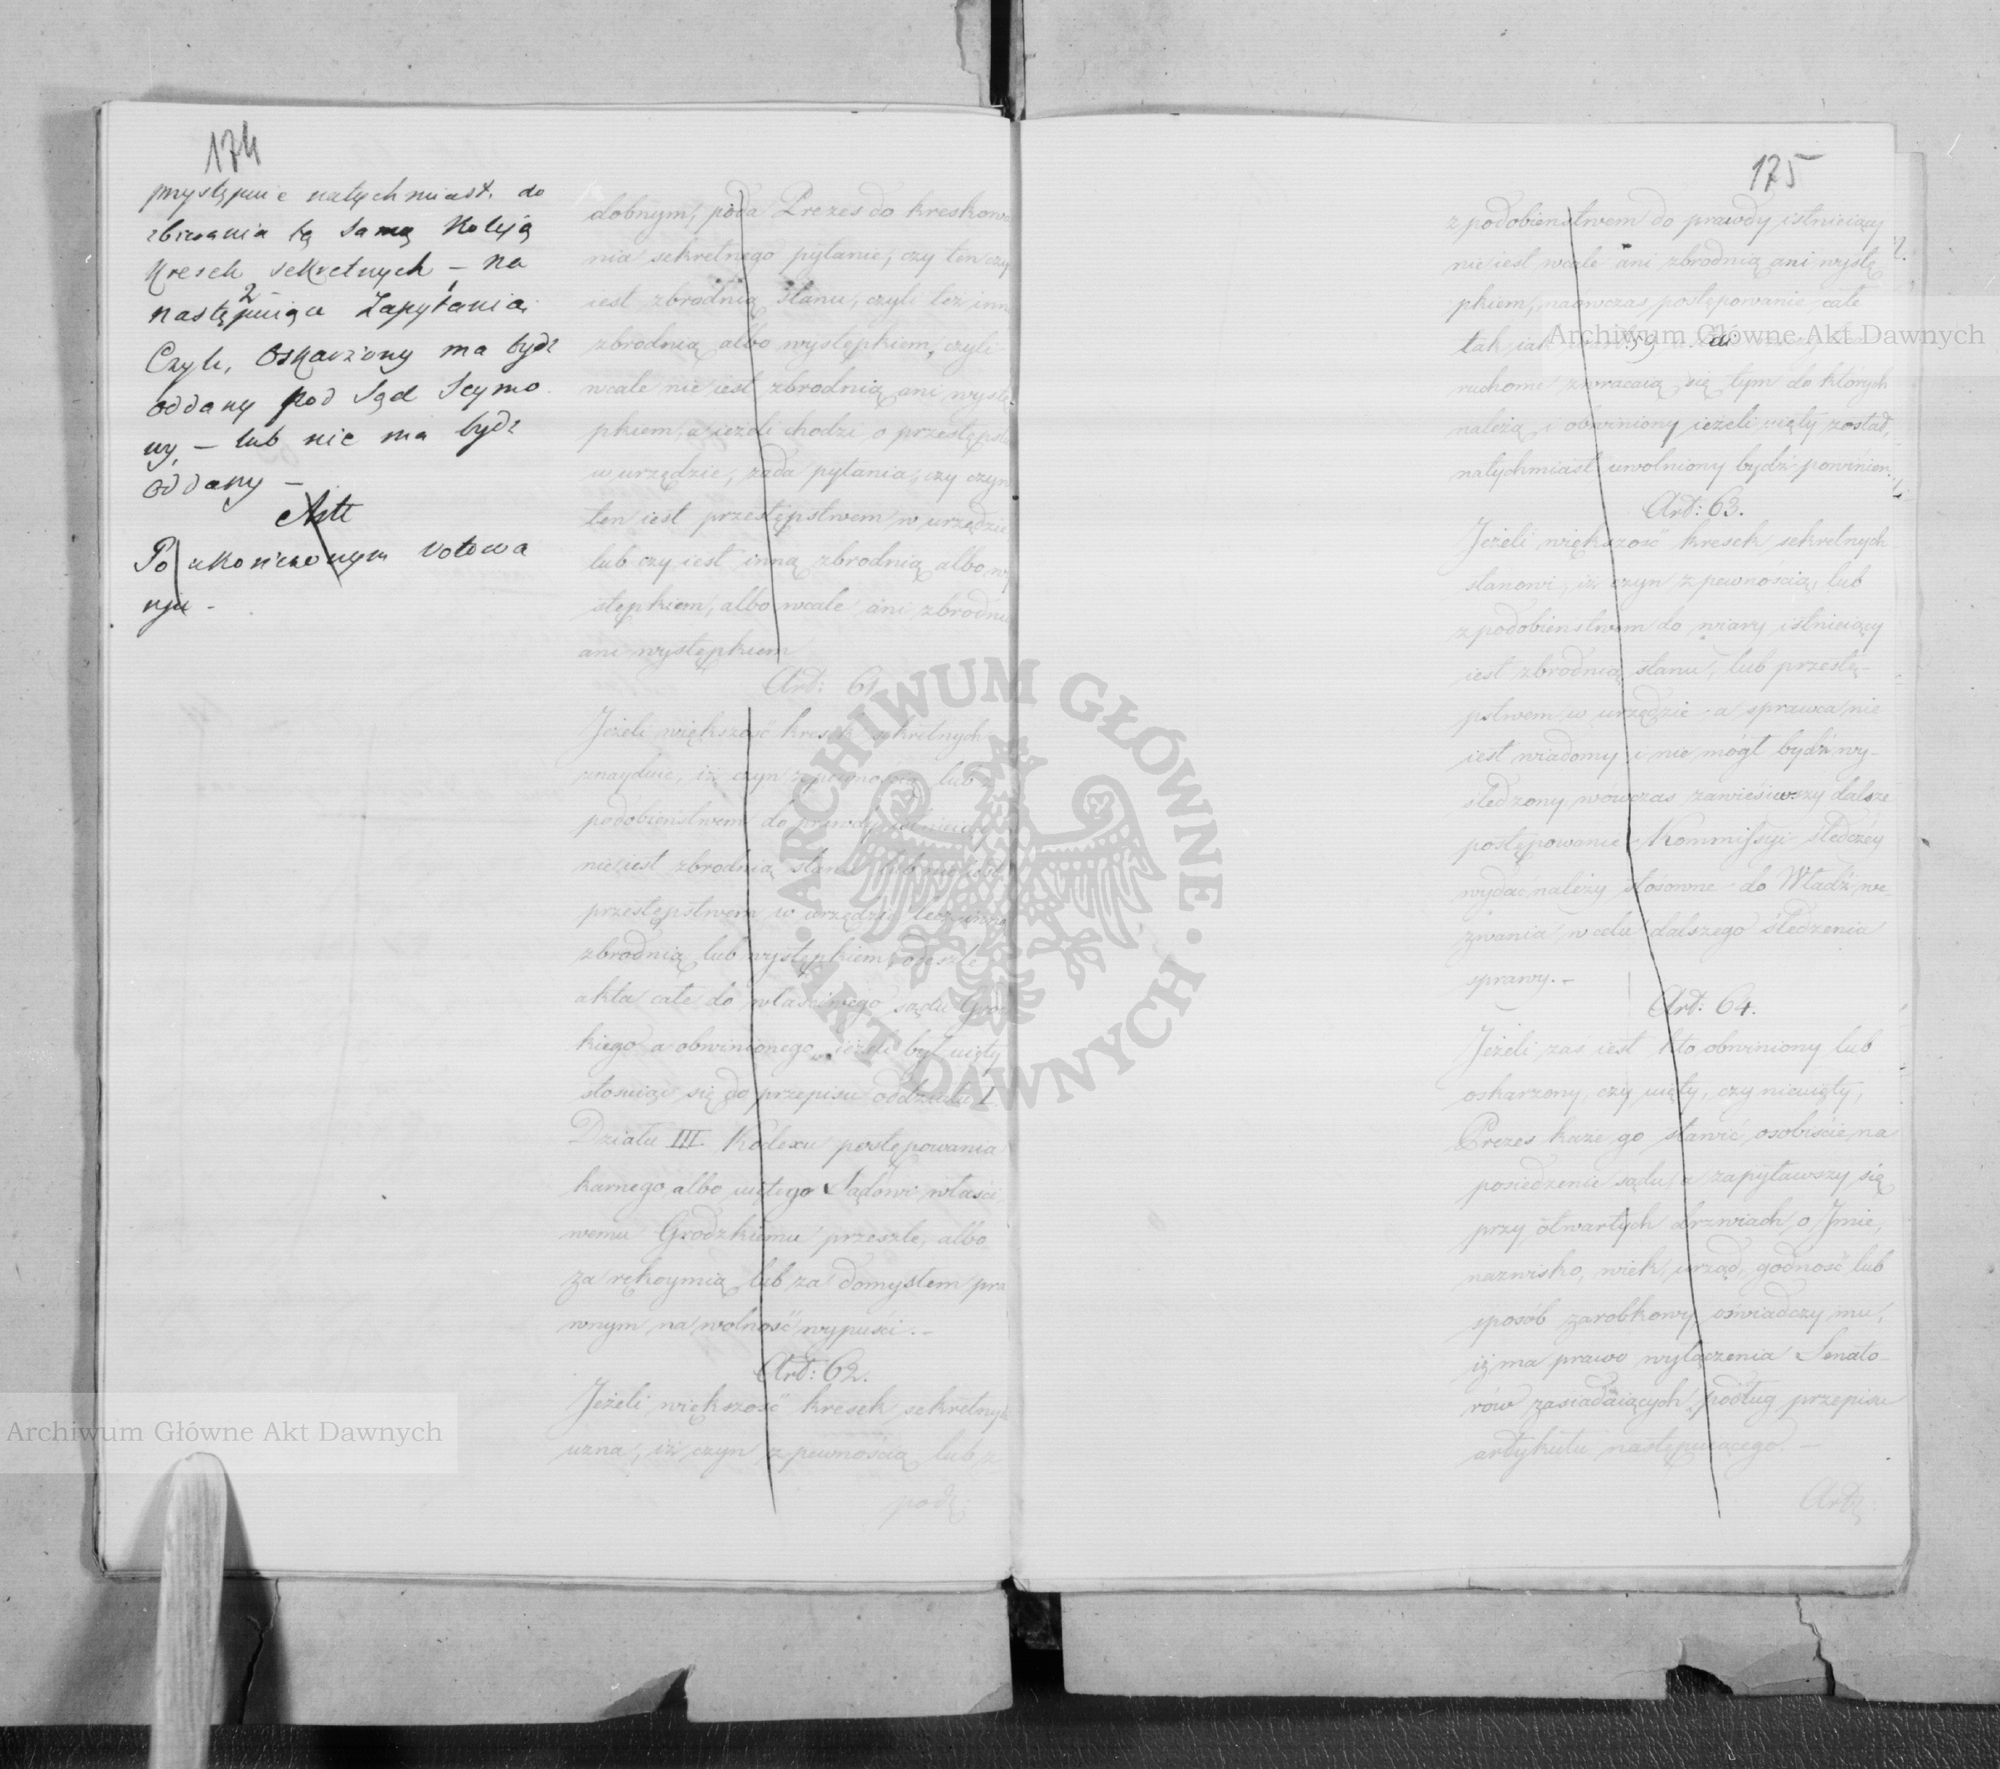 174
przystępuie natychmiast do
zbierania tą samą Koleją
Kresek sekretnych – na
następuiące 2 Zapytania
Czyli, Oskarżony ma bydź
oddany pod Sąd Seymo
wy, – lub nie ma bydź
oddany –
Artt
Po ukończonym Votowa
niu –
dobnym, poda Prezes do kreskowa
nia sekretnego pytanie, czy ten czy
iest zbrodnią stanu, czyli też inn
zbrodnią albo występkiem, czyli
wcale nie iest zbrodnią ani wystę
pkiem, a ieżeli chodzi o przestępst
w urzędzie, zada pytania, czy czyn
ten iest przestępstwem w urzędzie
lub czy iest inną zbrodnią albo wy
stępkiem, albo wcale ani zbrodni
ani występkiem
Art: 61
Jeżeli większość kresek sekretnych
znaydzie, iż czyn z pewnością lub z
podobieństwem do prawdy istnieiący
nie iest zbrodnią stanu lub nie iest
przestępstwem w urzędzie lecz inną
zbrodnią lub występkiem, odeszle
akta całe do właściwego sądu Grodz
kiego a obwinionego, ieżeli był uięty
stosuiąc się do przepisu oddziału I
Działu III Kodexu postępowania
karnego, albo uiętego Sądowi właści
wemu Grodzkiemu przeszle, albo
za rękoymią lub za domysłem pra
wnym na wolność wypuści. –
Art: 62.
Jeżeli większość kresek sekretnych
uzna, iż czyn z pewnością lub z
pod:
175
z podobieństwem do prawdy istnieiący
nie iest wcale ani zbrodnią ani wystę
pkiem, naówczas postępowanie całe
tak iak
ruchome zwracaią się tym do których
należą i obwiniony ieżeli uięty został,
natychmiast uwolniony bydź powinien.
Art: 63.
Jeżeli większość kresek sekretnych
stanowi, iż czyn z pewnością, lub
z podobieństwem do wiary istnieiący
iest zbrodnią stanu, lub przestę-
pstwem w urzędzie a sprawca nie
iest wiadomy i nie mógł bydź wy-
śledzony, wówczas zawiesiwszy dalsze
postępowanie Kommissyi śledczéy
wydać należy stosowne do Władz we
zwania, w celu dalszego śledzenia
sprawy. –
Art: 64.
Jeżeli zaś iest kto obwiniony lub
oskarżony, czy uięty, czy nieuięty,
Prezes każe go stawić osobiście na
posiedzenie sądu, a zapytawszy się
przy otwartych drzwiach o Imie,
nazwisko, wiek, urząd, godność lub
sposób zarobkowy, oświadczy mu,
iż ma prawo wyłączenia Senato-
rów zasiadaiących podług przepisu
artykułu następuiącego. –
Art:
Archiwum Główne Akt Dawnych
Archiwum Główne Akt Dawnych
ARCHIWUM GŁÓWNE AKT DAWNYCH